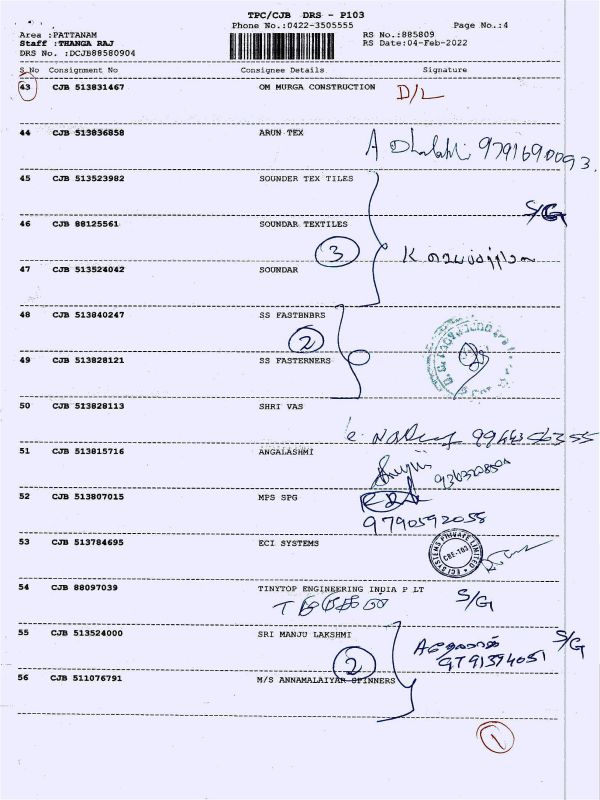 TPC/CJB DRS - P103
Phone No.:0422-3505555
Page No.:4
Area :PATTANAM
RS No.:885809
Staff :THANGA RAJ
RS Date:04-Feb-2022
DRS No. :DCJB88580904
S No Consignment No Consignee Details Signature
43 CJB 513831467 OM MURGA CONSTRUCTION D/L
44 CJB 513836858 ARUN TEX
A 9791690093.
45 CJB 513523982 SOUNDER TEX TILES
S/G
46 CJB 88125561 SOUNDAR TEXTILES
3 K
47 CJB 513524042 SOUNDAR
48 CJB 513840247 SS FASTBNBRS
2
49 CJB 513828121 SS FASTERNERS
50 CJB 513828113 SHRI VAS
9944356355
51 CJB 513815716 ANGALASHMI
52 CJB 513807015 MPS SPG
9790592058
53 CJB 513784695 ECI SYSTEMS
ECI SYSTEMS PRIVATE LIMITED
CBE-103
54 CJB 88097039 TINYTOP ENGINEERING INDIA P LT
S/G
55 CJB 513524000 SRI MANJU LAKSHMI
S/G
2 9791394051
56 CJB 511076791 M/S ANNAMALAIYAR SPINNERS
1